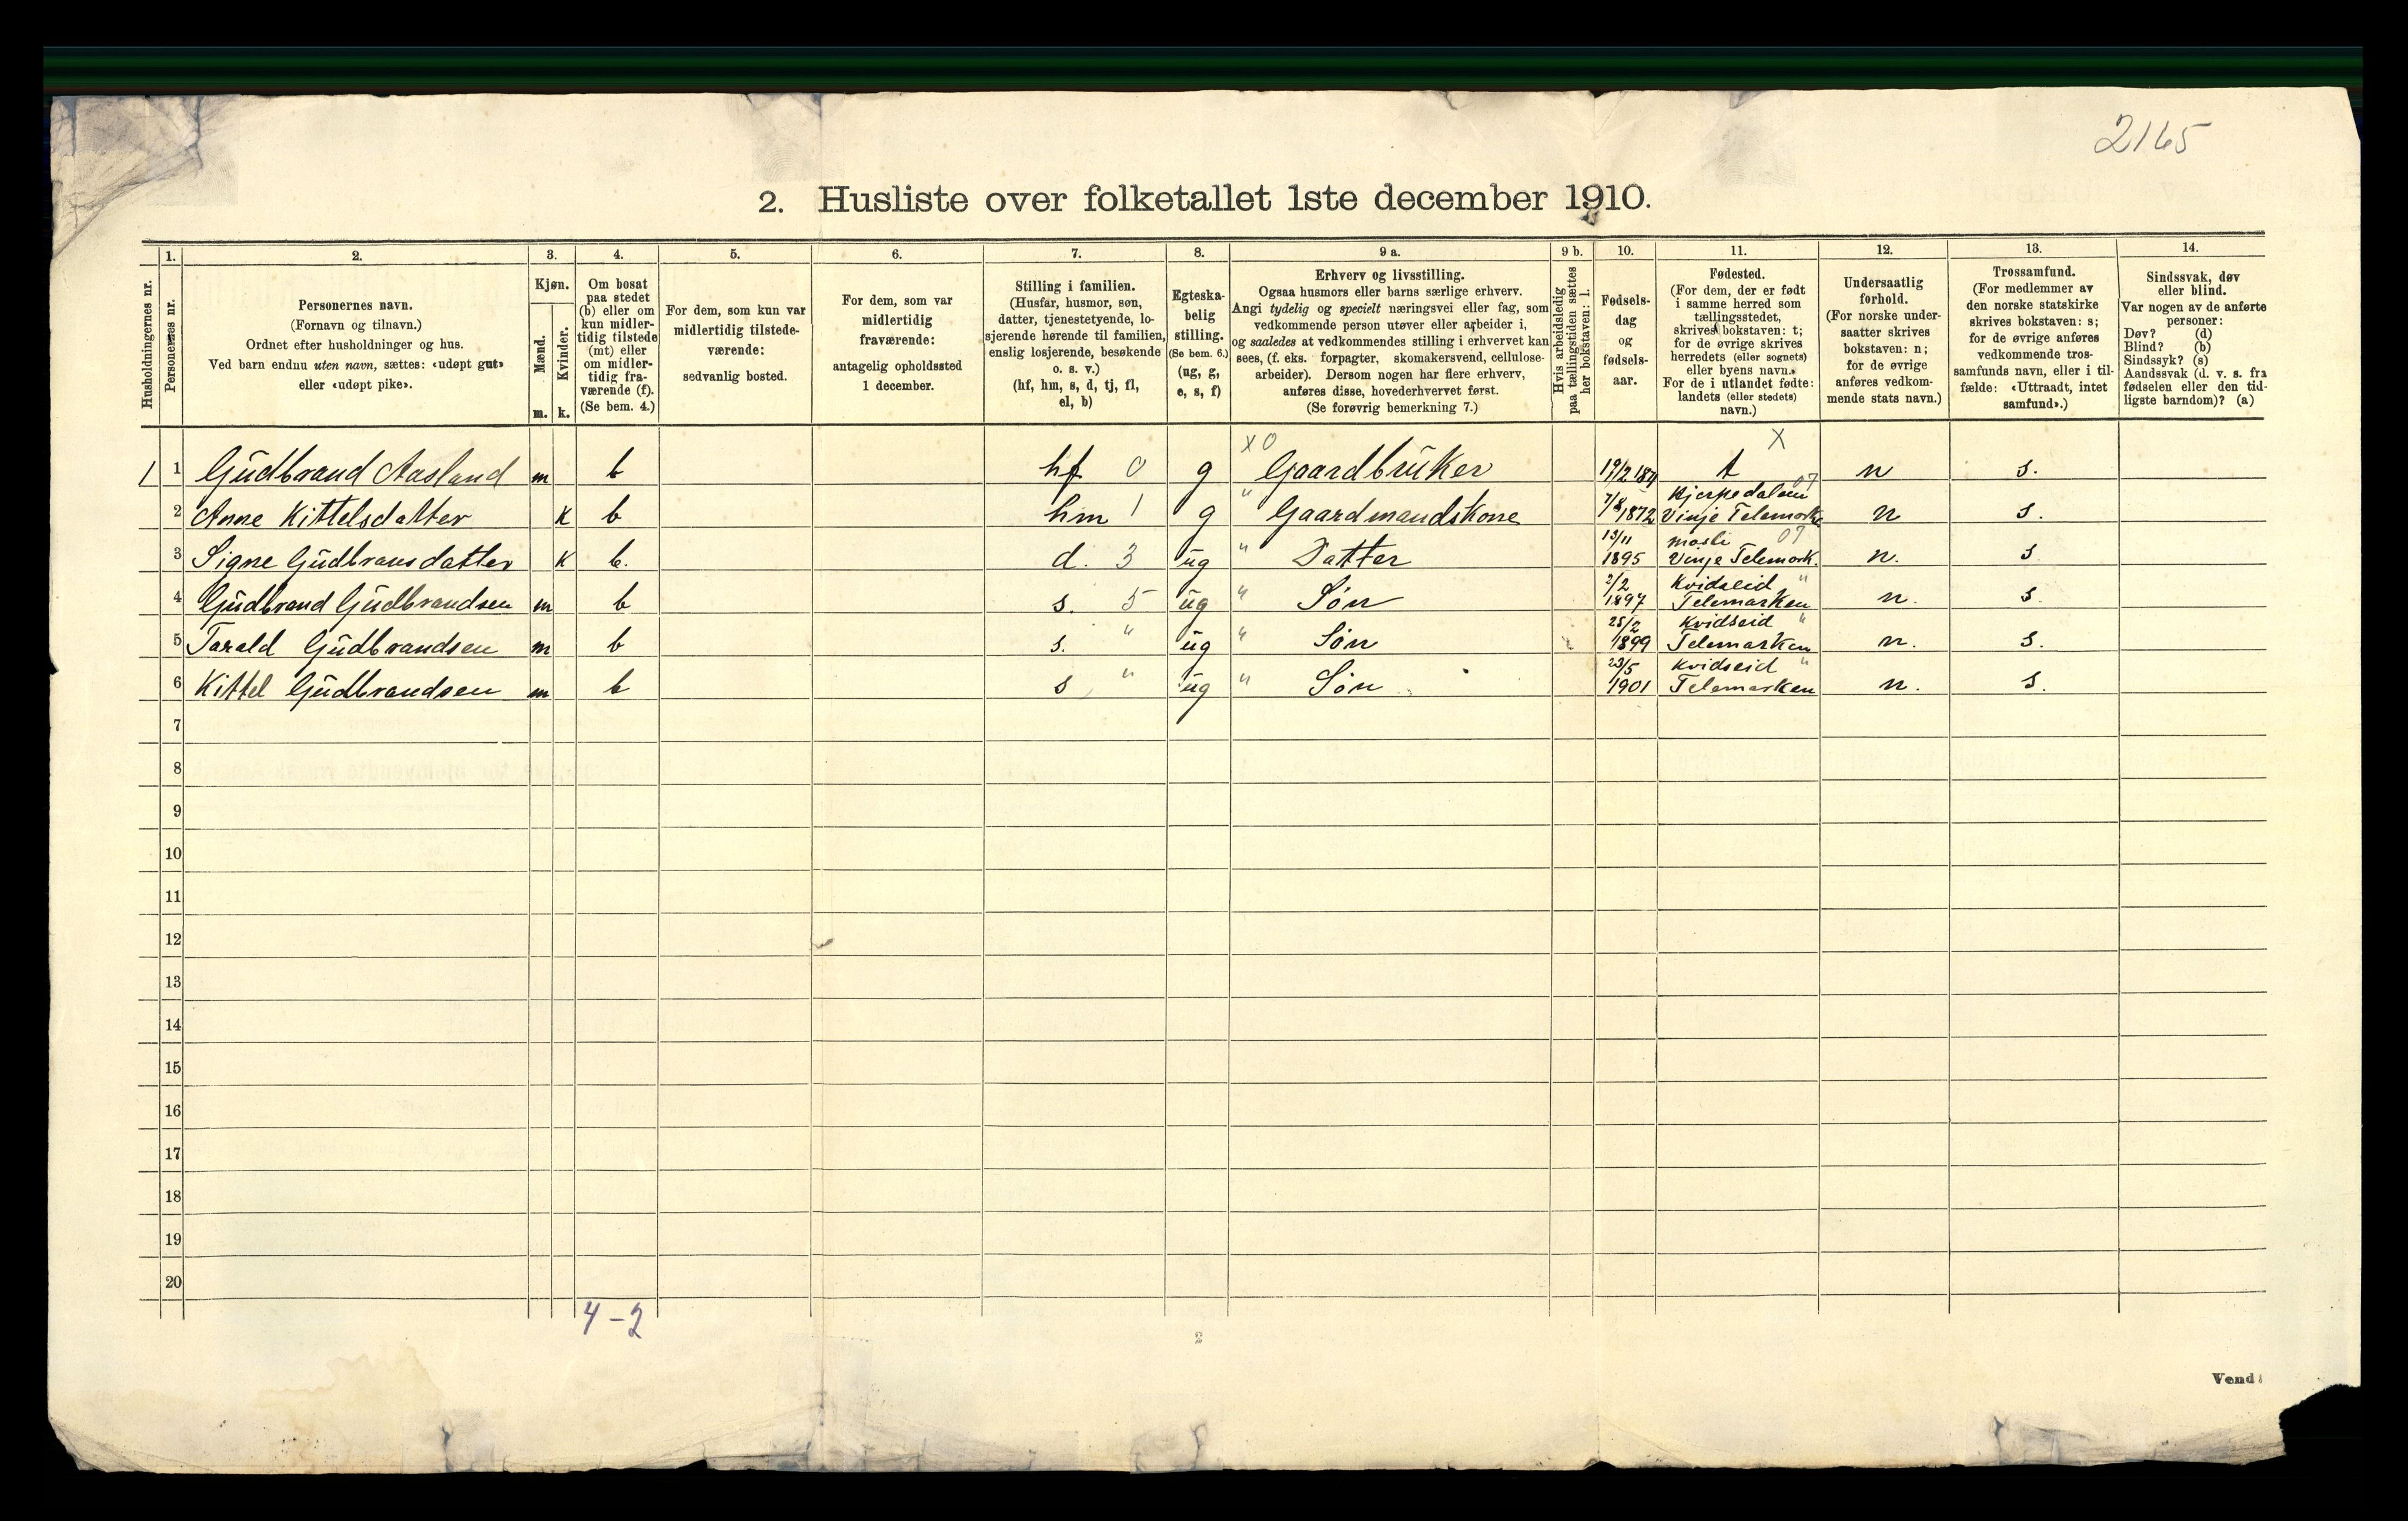 2165
2. Husliste over folketallet 1ste december 1910.
Husholdningernes nr.
1.
Personernes nr.
2.
Personernes navn.
(Fornavn og tilnavn.)
Ordnet efter husholdninger og hus.
Ved barn endnu uten navn, sættes: «udøpt gut»
eller «udøpt pike».
3.
Kjøn.
Mænd.
Kvinder.
m. k.
4.
Om bosat
paa stedet
(b) eller om
kun midler-
tidig tilstede
(mt) eller
om midler-
tidig fra-
værende (f).
(Se bem. 4.)
5.
For dem, som kun var
midlertidig tilstede-
værende:
sedvanlig bosted.
6.
For dem, som var
midlertidig
fraværende:
antagelig opholdssted
1 december.
7.
Stilling i familien.
(Husfar, husmor, søn,
datter, tjenestetyende, lo-
sjerende hørende til familien,
enslig losjerende, besøkende
o. s. v.)
(hf, hm, s, d, tj, fl,
el, b)
8.
Egteska-
belig
stilling.
(Se bem. 6.)
(ug, g,
e, s, f)
9 a.
Erhverv og livsstilling.
Ogsaa husmors eller barns særlige erhverv.
Angi tydelig og specielt næringsvei eller fag, som
vedkommende person utøver eller arbeider i,
og saaledes at vedkommendes stilling i erhvervet kan
sees, (f. eks. forpagter, skomakersvend, cellulose-
arbeider). Dersom nogen har flere erhverv,
anføres disse, hovederhvervet først.
(Se forøvrig bemerkning 7.)
9 b.
Hvis arbeidsledig
paa tællingstiden sættes
her bokstaven: l.
10.
Fødsels-
dag
og
fødsels-
aar.
11.
Fødested.
(For dem, der er født
i samme herred som
tællingsstedet,
skrives bokstaven: t;
for de øvrige skrives
herredets (eller sognets)
eller byens navn.
For de i utlandet fødte:
landets (eller stedets)
navn.)
12.
Undersaatlig
forhold.
(For norske under-
saatter skrives
bokstaven: n;
for de øvrige
anføres vedkom-
mende stats navn.)
13.
Trossamfund.
(For medlemmer av
den norske statskirke
skrives bokstaven: s;
for de øvrige anføres
vedkommende tros-
samfunds navn, eller i til-
fælde: «Uttraadt, intet
samfund».)
14.
Sindssvak, døv
eller blind.
Var nogen av de anførte
personer:
Døv? (d)
Blind? (b)
Sindssyk? (s)
Aandssvak (d. v. s. fra
fødselen eller den tid-
ligste barndom)? (a)
1 1 Gudbrand Aasland m b hf 0 g X0 Gaardbruker 19/2 t X n s.
2 Anne Kittelsdatter K b hm 1 g " Gaardmandskone 7/8 1872 Kjerpedalen 07 Vinje Telemarke n s.
3 Signe Gudbransdatter K b. d. 3 ug " Datter 13/11 1895 mosli 07 Vinje Telemark. n. s
4 Gudbrand Gudbrandsen m b s. 5 ug " Søn 2/2 1897 Kvidseid " Telemarken n. s.
5 Tarald Gudbrandsen m b s. " ug " Søn 25/2 1899 Kvidseid " Telemarken n. s.
6 Kittel Gudbrandsen m b s " ug " Søn 23/5 1901 Kvidseid " Telemarken n. s.
7
8
9
10
11
12
13
14
15
16
17
18
19
20
4-2
2
Vend!